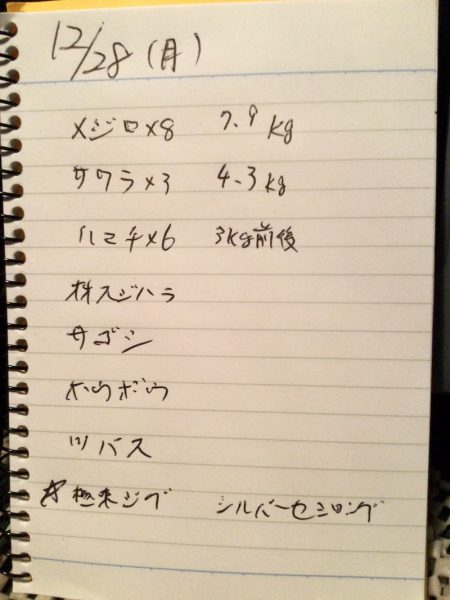 12/28(月)
メジロ×8 7.9kg
サワラ×3 4.3kg
ハマチ×6 3kg前後
スジハラ
サゴシ
ホウボウ
ツバス
☆ ジグ シルバーセミロング